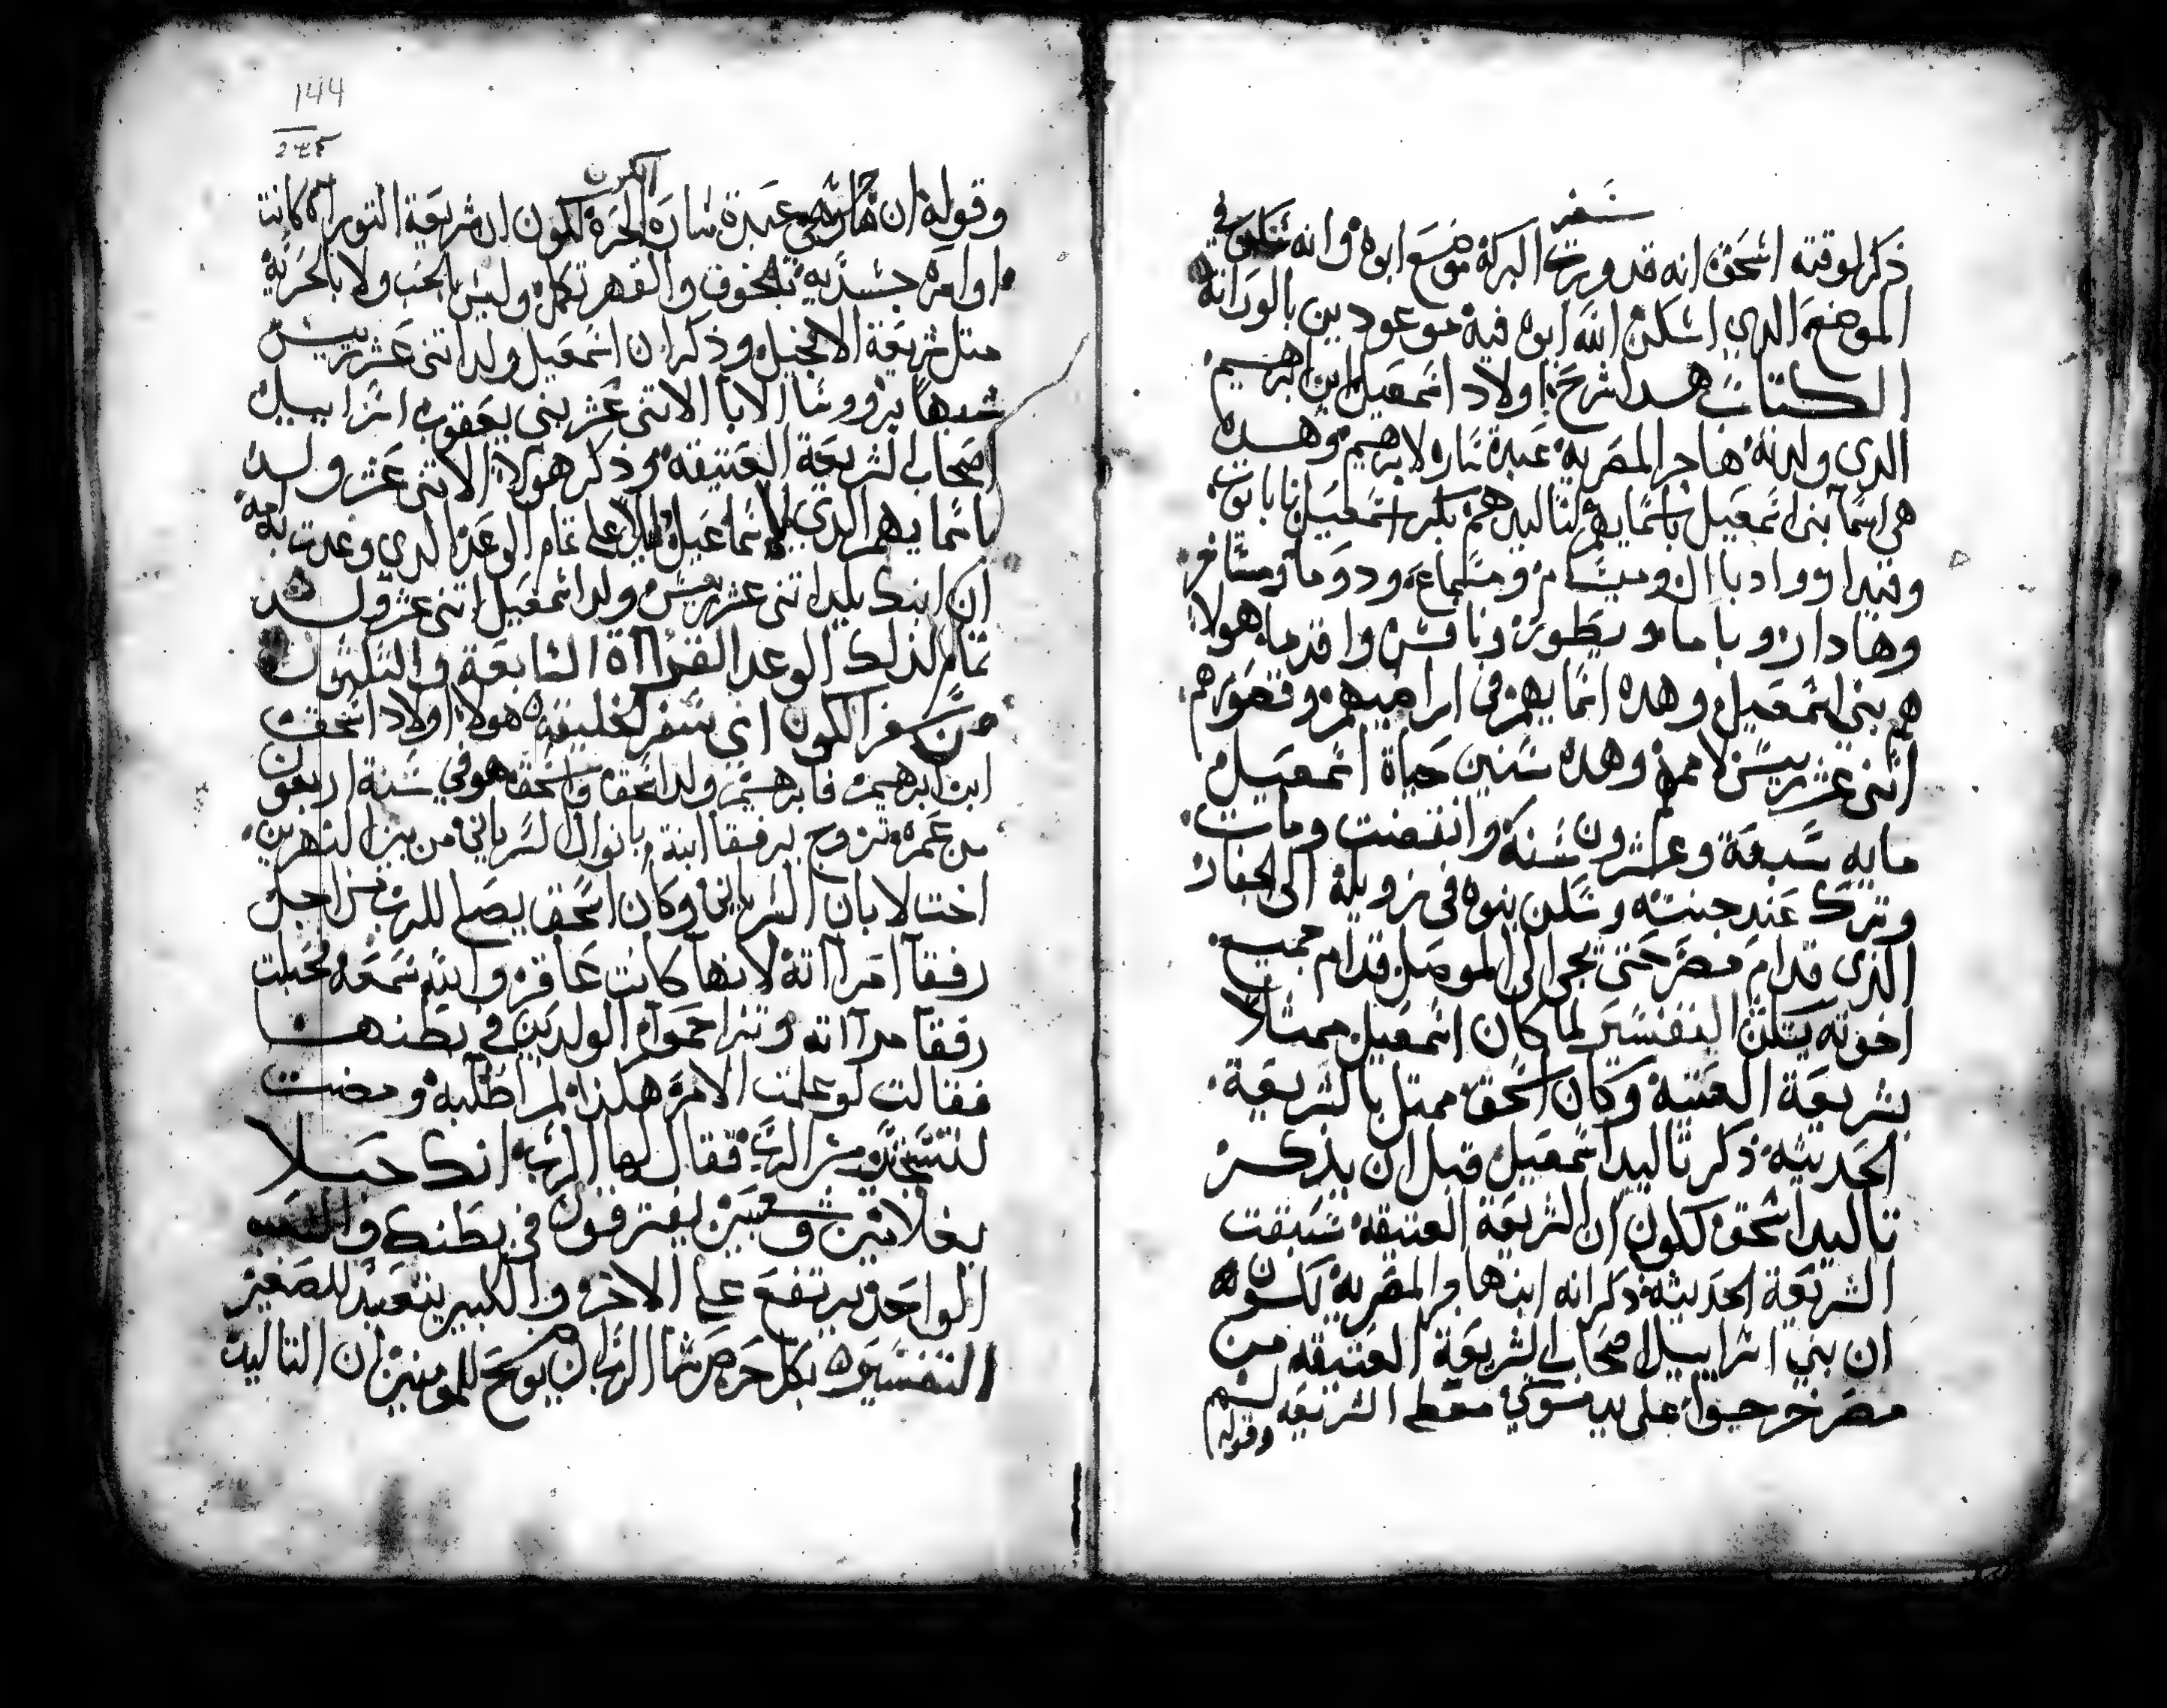 سفر
ذكر لوقته اسحق انه قد ورت البركة موضع ابوه وانه سكن في
الموضع الدي اسكن الله ابوه فيه موعودين بالوراتة
الكتاب هدا شرح اولاد اسمعيل ابن ابرهيم
الدي ولدته هاجر المصريه عبدة ساره لابرهيم وهده
هي اسما بني اسمعيل باسمايهم لتاليدهم بكر اسمعيل نابابوت
وقيدار وادباال ومبسام ومسماعه ودوما ومسا
وهادار وياما ويطور ونافس واقدما هولا
هم بني اسمعيل وهده اسمايهم في وقصورهم
اتني عشر رييس لاممهم وهده سنين حياة اسمعيل
مايه سبعة وعشرون سنة وانتقضت ومات
وترك عند جنسه وسكن بنوه في زويلة الى الجفار
الدي قدام مصر حتى تجي الى الموصل قدام جميع
اخوته يسكن التفسير لما كان اسمعيل ممتلا
بشريعة العتيقة وكان اسحق ممتل بالشريعة
الحديته ذكر تاليد اسمعيل قبل ان يذكر
تاليد اسحق لكون ان الشريعة العتيقه سبقت
الشريعة الحديثه ذكر انه ابن هاجر المصريه لكون
ان بني اسراييل اصحاب الشريعة العتيقه من
مصر خرجوا على يد موسي معطي الشريعه لهم
وقوله
144
الكون
وقوله ان هاجر هي عبدة ساره الحره لكون ان شريعة التوراه كانت
اوامره جسديه بالخوف والقهر تكمل وليس بالحب ولا بالحرية
متل شريعة الانجيل وذكر ان اسمعيل ولد اتني عشر رييس
شبها بروسا الابا الاتني عشر بني يعقوب اسراييل
اصحاب الشريعة العتيقه وذكر هولا الاتني عشر ولد
باسمايهم الدي لاسماعيل على تمام الوعد الدي وعدت به امه
ان ابنك يلد اتني عشر رييس ولد اسمعيل اتني عشر ولد
تمام لدلك الوعد القراة السابعة والتلتون
من سفر الكون اي سفر الخليقه هولا اولاد اسحق
ابن ابرهيم فابرهيم ولد اسحق واسحق هو في سنة اربعون
من عمره تزوج برفقا ابنة باتوال السرياني من بين النهرين
اخت لابان السرياني وكان اسحق يصلي للرب من اجل
رفقا امراته لانها كانت عاقر والله سمعه فحبلت
رفقا مراته وتزاحموا الولدين في بطنها
فقالت لو علمت الامر هكذا لم اطلبه ومضت
لتستخبر من الرب فقال لها الرب انك حبلا
بغلامين وشعبين يفترقون في بطنك والشعب
الواحد يرتفع على الاخر والكبير يتعبد للصغير
التفسير بكل حرص شا الرب ان يوضح للمومنين ان التاليد